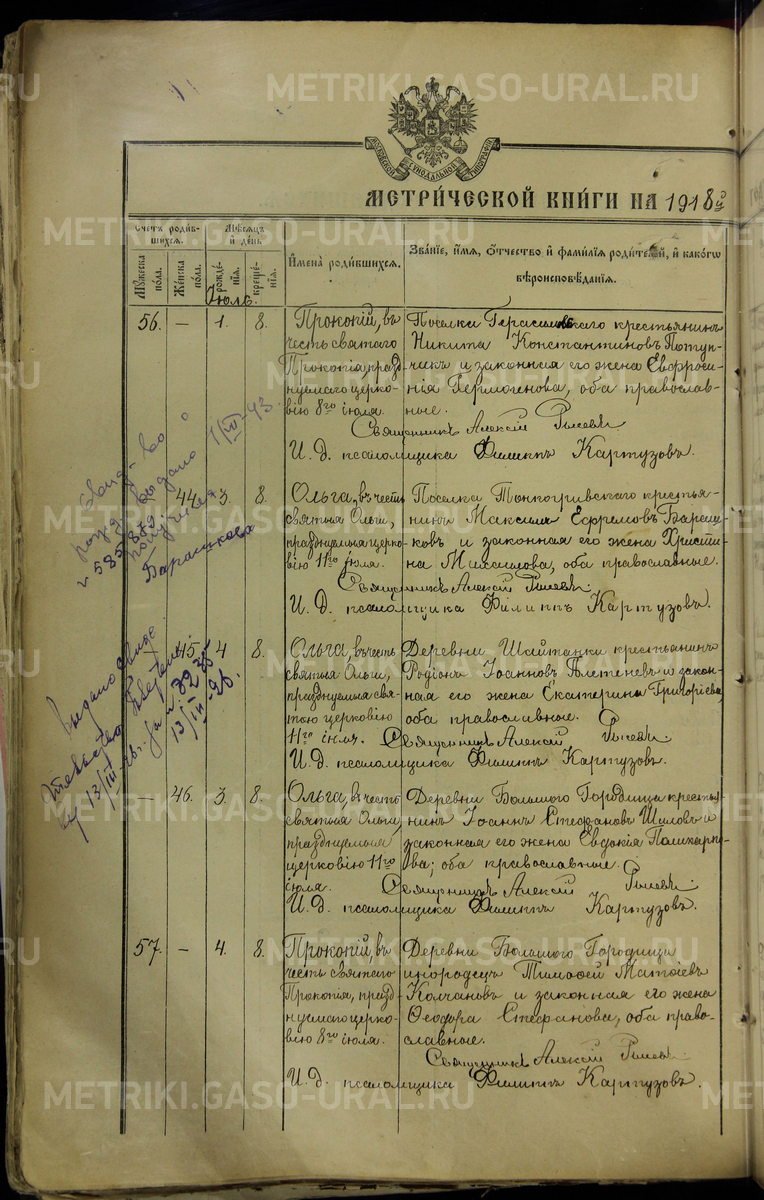 METRIKI.GASO-URAL.RU
МОСКОВСКОЙ СѴНОДАЛЬНОЙ ТИПОГРАФІИ
МЕТРИ́ЧЕСКОЙ КНИ́ГИ НА 1918й
Счетъ роди́вшихся.
Мѣ́сяцъ и҆ де́нь
И҆мена̀ роди́вшихся.
Зва́нїе, и҆́мѧ, ѻ҆́тчество и҆ фами́лїѧ роди́телей, и҆ како́гѡ вѣроисповѣ́данїѧ.
Му́жеска по́ла.
Же́нска по́ла.
рожде́нїѧ.
креще́нїѧ.
Іюль.
56. — 1. 8.
Прокопій, въ
честь святаго
Прокопія, празд-
нуемаго церко-
вію 8го іюля.
Поселка Герасимовскаго крестьянинъ
Никита Константиновъ Потуп-
чикъ и законная его жена Евфроси-
нія Гермогенова, оба православ-
ные.
Священникъ Алексій
И. д. псаломщика Филиппъ Картузовъ.
— 44. 3. 8.
Ольга, въ честь
святыя Ольги,
празднуемыя церко-
вію 11го іюля.
Поселка Тонкогривскаго крестья-
нинъ Максимъ Ефремовъ Бараш-
ковъ и законная его жена Христи-
на оба православные.
Священникъ Алексій
И. д. псаломщика Филиппъ Картузовъ.
45. 4 8.
Ольга, въ честь
святыя Ольги,
празднуемыя свя-
тою церковію
11го іюля.
Деревни Шайтанки крестьянинъ
Родіонъ Іоанновъ Плетеневъ и закон-
ная его жена Екатерина Григоріева,
оба православные.
Священникъ Алексій
И. д. псаломщика Филиппъ Картузовъ.
— 46. 3. 8.
Ольга, въ честь
святыя Ольги,
празднуемыя
церковію 11го
іюля.
Деревни Большого Городища крестья-
нинъ Іоаннъ Стефановъ Шиловъ и
законная его жена Евдокія Поликарпо-
ва; оба православные.
Священникъ Алексій
И. д. псаломщика Филиппъ Картузовъ.
57. — 4. 8.
Прокопій, въ
честь святаго
Прокопія, празд-
нуемаго церко-
вію 8го іюля.
Деревни Большого Городища
инородецъ Тимофей
Колчановъ и законная его жена
Ѳеодора Стефанова, оба право-
славные.
Священникъ Алексій
И. д. псаломщика Филиппъ Картузовъ.
Свид-во о
рожд. выдано
Барашкова